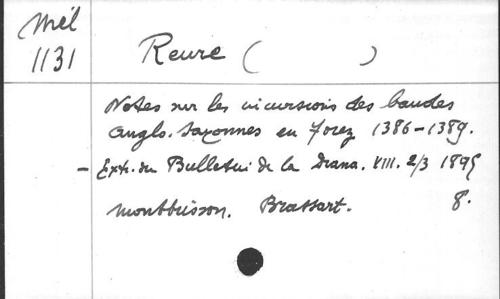 Mél
1131
Reure ( )
Notes sur les incursions des bandes
anglo-saxonnes en Forez 1386-1389.
- Extr. du Bulletin de la Diana. VIII. 2/3 1895
Montbrison. Brassart. 8.